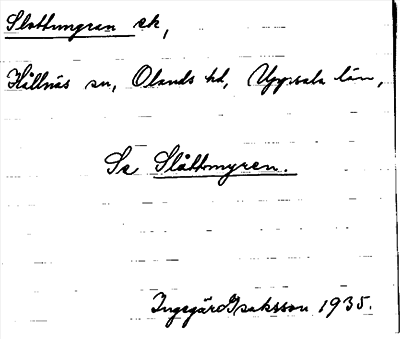 Slottmyran ek,
Hållnäs sn, Olands hd, Uppsala län,
Se Slåttmyren.
Ingegärd Isaksson 1935.